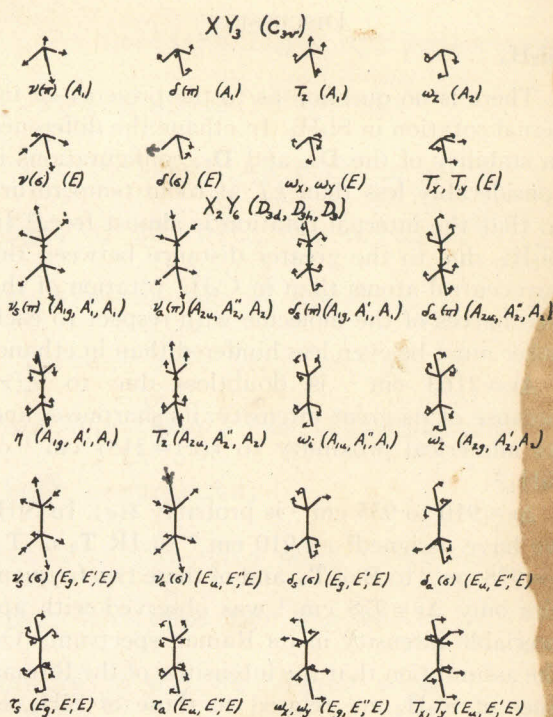 XY₃ (C₃ᵥ)
ν(π) (A₁) δ(π) (A₁) Tₙ (A₁) ω₂ (A₂)
ν(σ) (E) δ(σ) (E) ωₓ, ωᵧ (E) Tₓ, Tᵧ (E)
X₂Y₆ (D₃d, D₃h, D₃)
νₛ(π) (A₁g, A₁', A₁) νₐ(π) (A₂u, A₂'', A₂) δₛ(π) (A₁g, A₁', A₁) δₐ(π) (A₂u, A₂'', A₂)
η (A₁g, A₁', A₁) Tₙ (A₂u, A₂'', A₂) (A₁u, A₁'', A₁) ω₂ (A₂g, A₂', A₂)
νₛ(σ) (Eg, E', E) νₐ(σ) (Eu, E'', E) δₛ(σ) (Eg, E', E) δₐ(σ) (Eu, E'', E)
τₛ (Eg, E', E) τₐ (Eu, E'', E) ωₓ, ωᵧ (Eg, E'', E) (Eu, E', E)